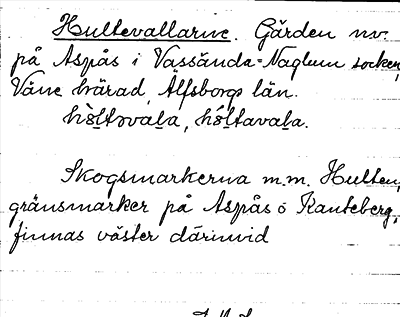 Hultevallarne. Gärden nv.
på Aspås i Vassända-Naglum socken,
Väne härad, Älfsborgs län.
hòltəvala, hóltavala.
Skogsmarkerna m.m. Hulten,
gränsmarker på Aspås o Ranteberg,
finnas väster därinvid